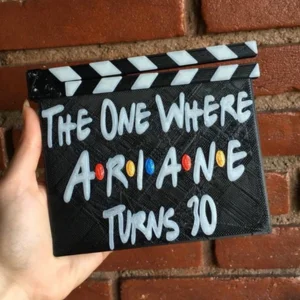 THE ONE WHERE
A•R•I•A•N•E
TURNS 30